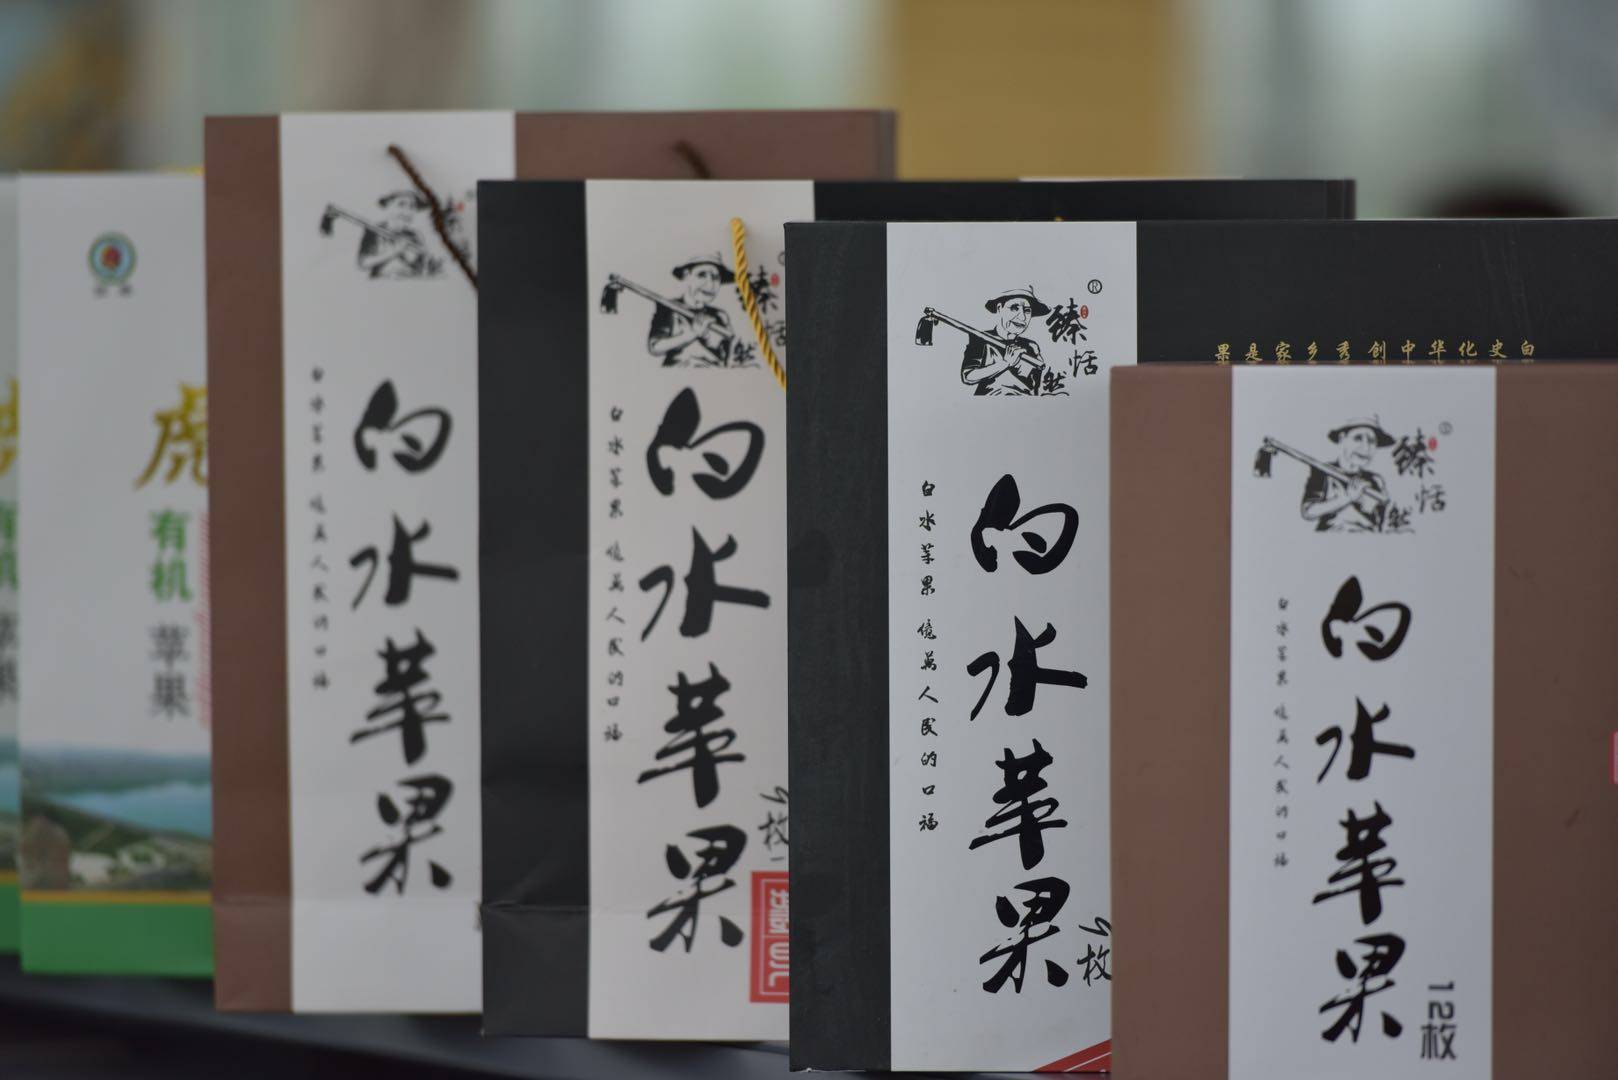 有机
苹果
白水苹果
白水苹果 億萬人民的口福
白水苹果
白水苹果 億萬人民的口福
枚
臻
恬
然
®
白水苹果
白水苹果 億萬人民的口福
枚
果是家乡秀创中华化史白
臻
恬
然
白水苹果
白水苹果 億萬人民的口福
12枚